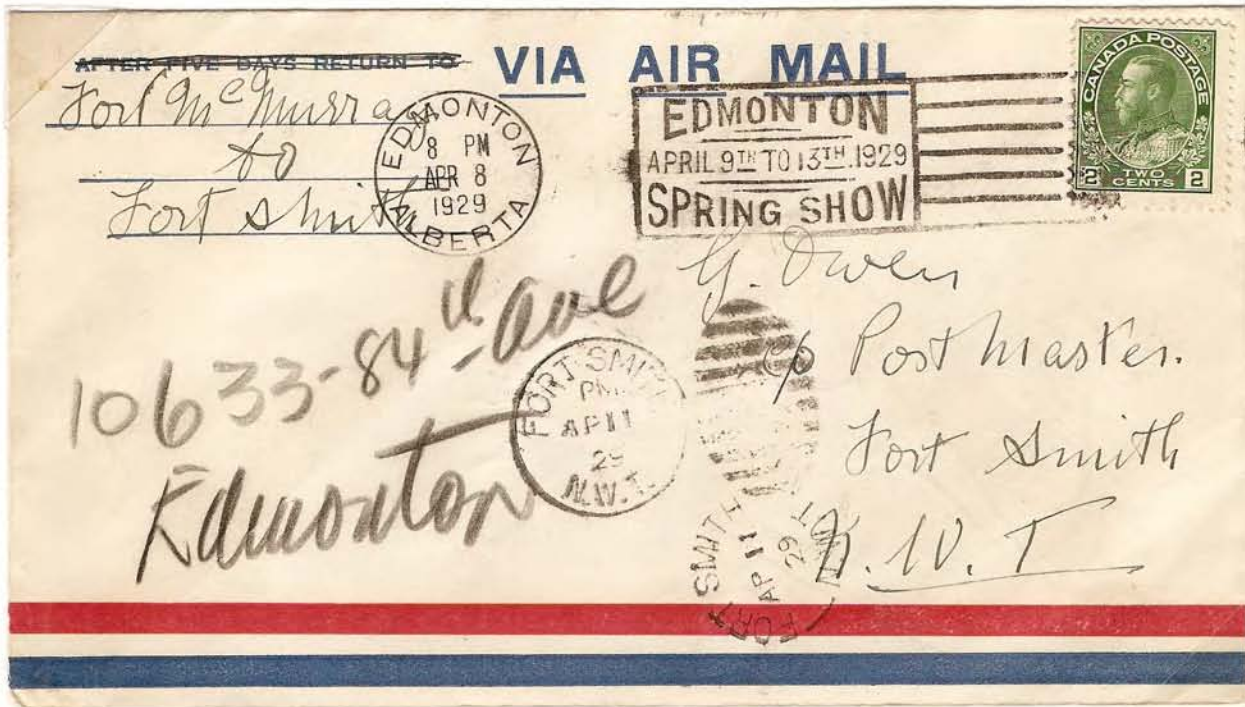 AFTER FIVE DAYS RETURN TO
VIA AIR MAIL
Fort McMurray
to
Fort Smith
EDMONTON
8 PM
APR 8
1929
ALBERTA
EDMONTON
APRIL 9TH TO 13TH 1929
SPRING SHOW
CANADA POSTAGE
2 TWO CENTS 2
G. Owen
c/o Post Master.
Fort Smith
N.W.T
10633-84th Ave
Edmonton
FORT SMITH
PM
AP 11
29
N.W.T.
FORT SMITH
AP 11
29
N.W.T.